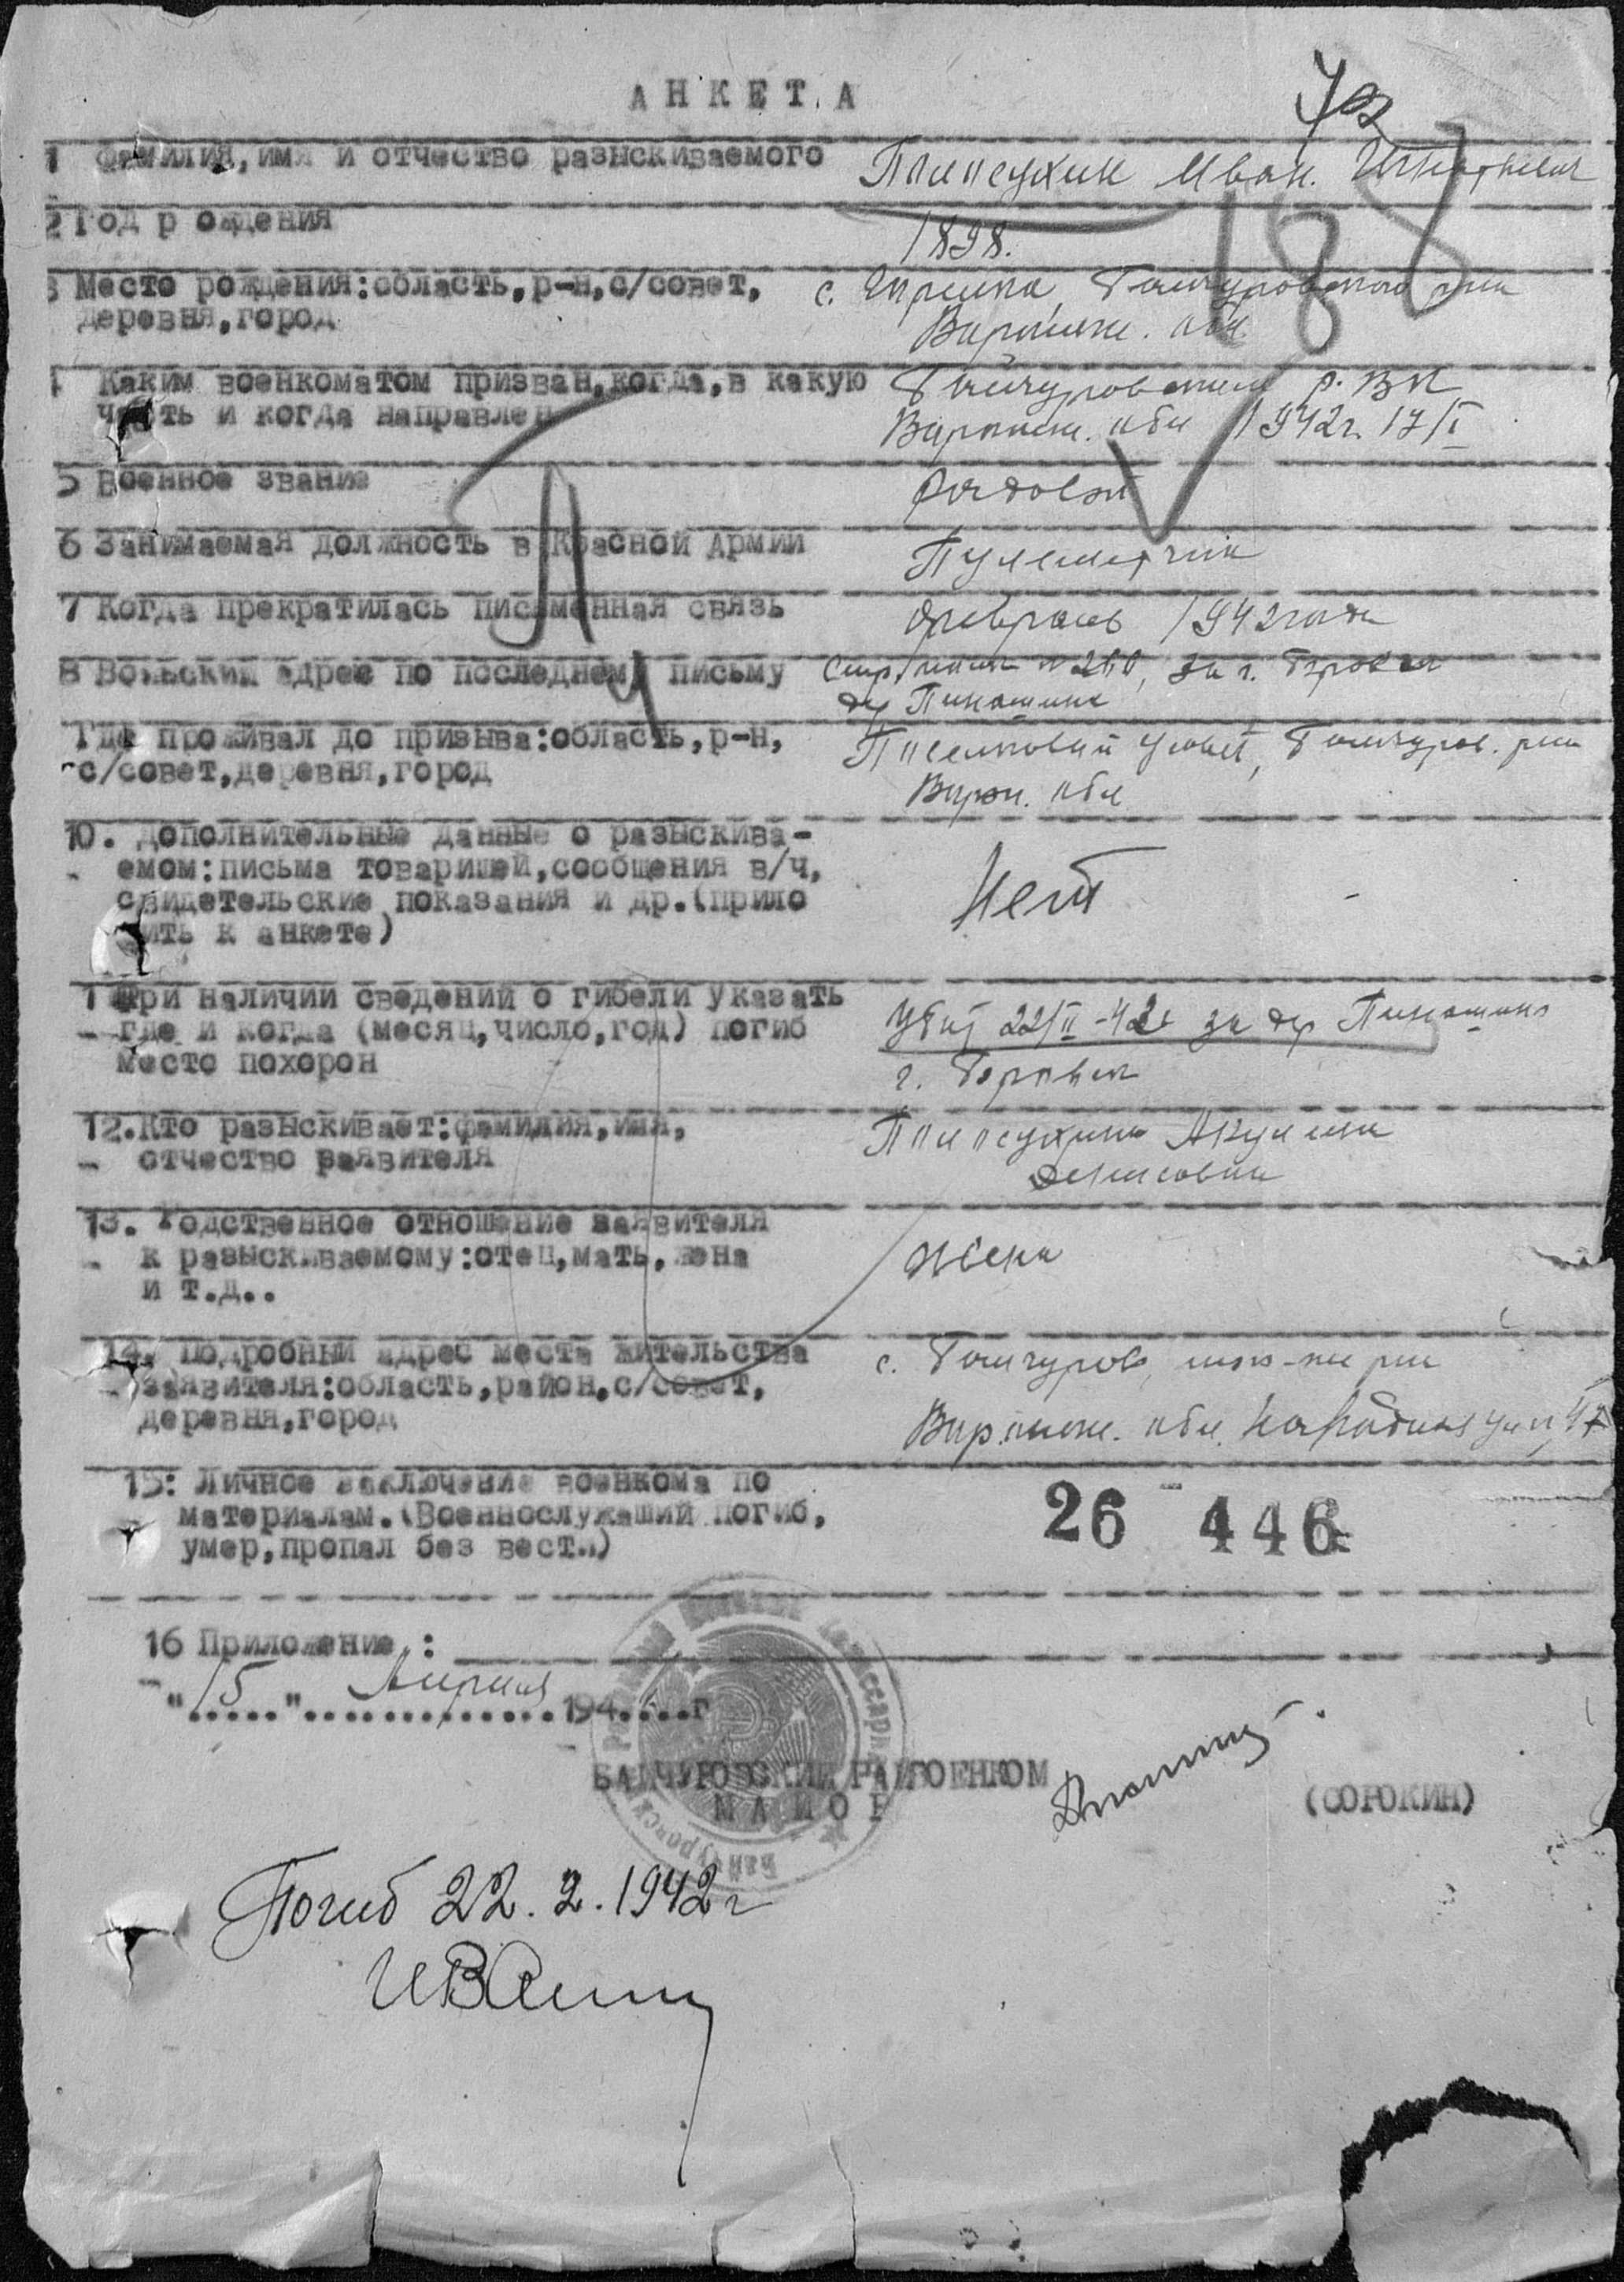 АНКЕТА
1 Фамилия, имя и отчество разыскиваемого Иван. Игнатьевич
2 Год рождения 1898.
188
3 Место рождения: область, р-н, с/совет, с. Байчуровского р-на
деревня, город Воронеж. обл.
Каким военкоматом призван, когда, в какую Байчуровским р. ВК
часть и когда направлен Воронеж. обл 1942г. 17/I
5 Военное звание Рядовой
6 Занимаемая должность в Красной Армии Пулеметчик
7 Когда прекратилась письменная связь февраль 1942 года
8 Воинский адрес по последнему письму за г. Боровск
д.
Где проживал до призыва: область, р-н, Поселковый Байчуров. р-на
с/совет, деревня, город Ворон. обл
10. Дополнительные данные о разыскива-
емом: письма товарищей, сообщения в/ч, Нет
свидетельские показания и др. (прило
ить к анкете)
При наличии сведений о гибели указать Убит 22/II-42г за дер
где и когда (месяц, число, год) погиб г. Боровск
место похорон
12. Кто разыскивает: фамилия, имя, Акулина
отчество заявителя Денисовна
13. Родственное отношение заявителя
к разыскиваемому: отец, мать, жена Жена
и т.д..
14. Подробный адрес места жительства с. Байчурово, р-на
заявителя: область, район, с/совет,
деревня, город Воронеж. обл. Народная ул
15: Личное заключение военкома по 26 446
материалам. (Военнослужащий погиб,
умер, пропал без вести)
16 Приложение:
"15" Апреля 194....г
БАЙЧУРОВСКИЙ РАЙВОЕНКОМ
МАЙОР (СОРОКИН)
Погиб 22.2.1942г